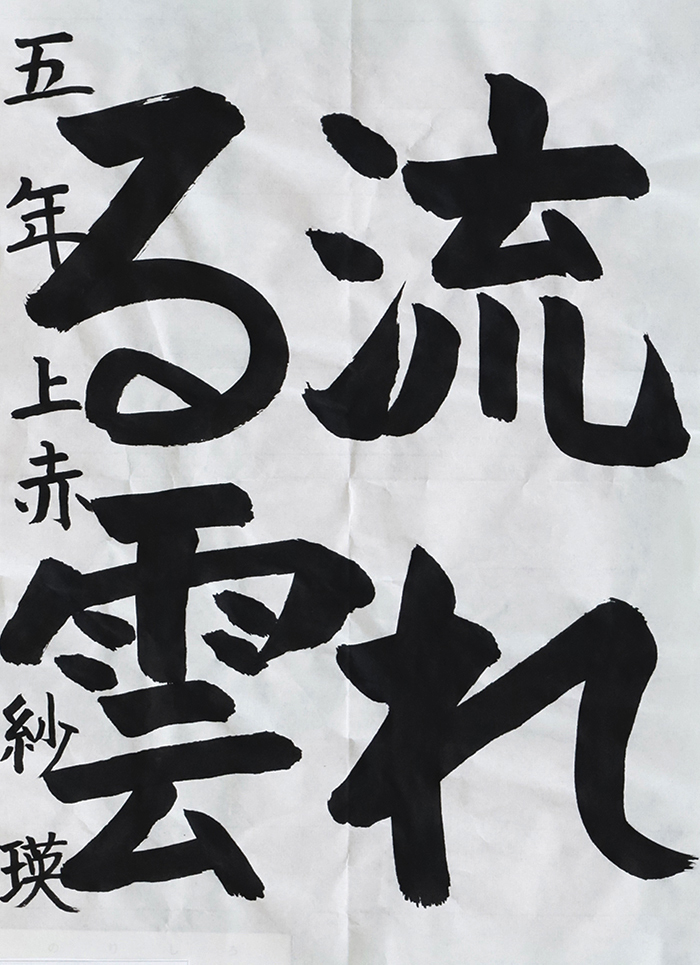 流れ
る雲
五年 上赤 紗瑛